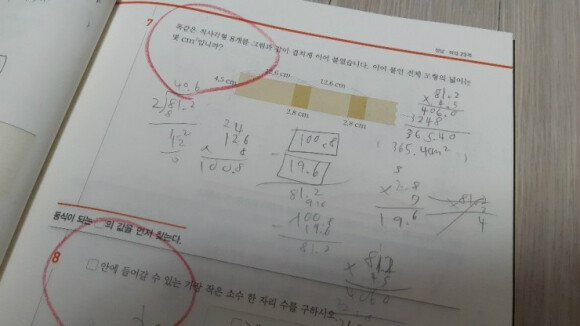 7
똑같은 직사각형 8개를 그림과 같이 겹치게 이어 붙였습니다. 이어 붙인 전체 도형의 넓이는
몇 cm²입니까?
정답·해설 23쪽
4.5 cm
12.6 cm
12.6 cm
2.8 cm
2.8 cm
40.6
2 81.2
8
1.2
0
24
12.6
× 8
100.8
100.8
- 19.6
81.2
100.8
- 19.6
81.2
81.2
× 4.5
406.0
3248
365.40
365.40㎠
5
× 2.8
7
19.6
81.2
× 45
4060
등식이 되는 □의 값을 먼저 찾는다.
8
□안에 들어갈 수 있는 가장 작은 소수 한 자리 수를 구하시오.